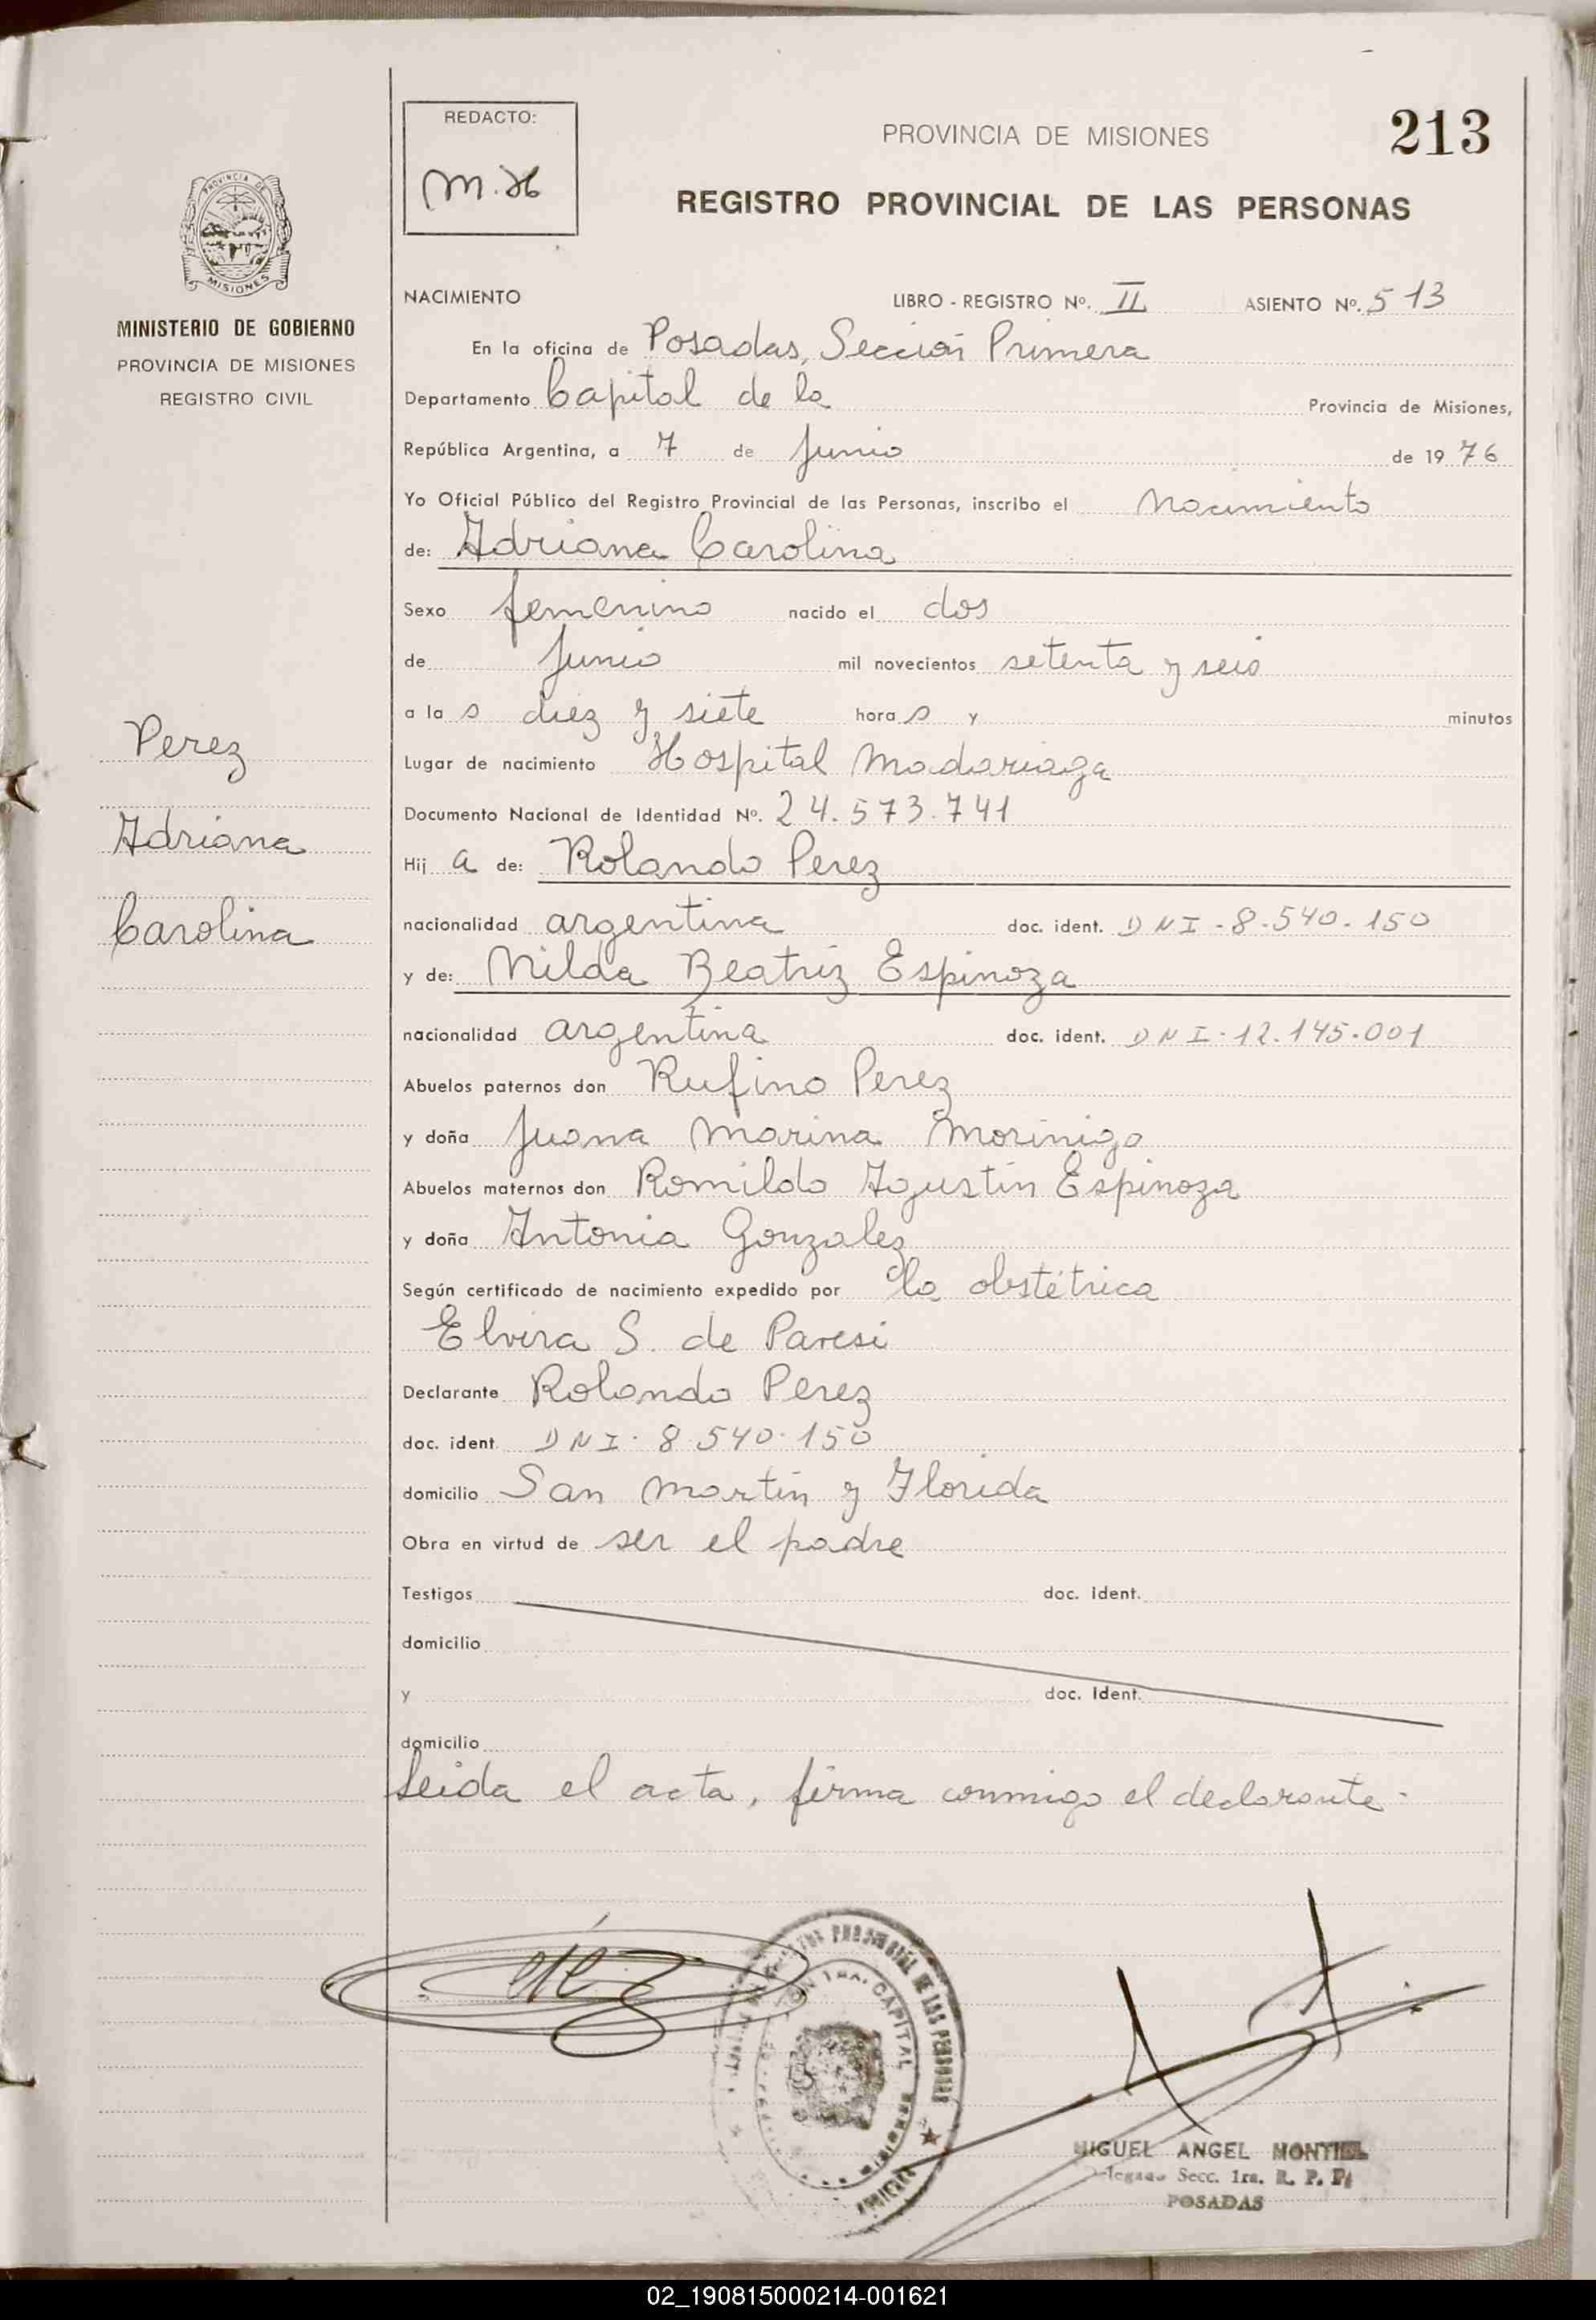 REDACTO:
M.H
PROVINCIA DE MISIONES
213
REGISTRO PROVINCIAL DE LAS PERSONAS
PROVINCIA DE
MISIONES
MINISTERIO DE GOBIERNO
PROVINCIA DE MISIONES
REGISTRO CIVIL
NACIMIENTO LIBRO - REGISTRO Nº. II ASIENTO Nº. 513
En la oficina de Posadas, Sección Primera
Departamento Capital de la Provincia de Misiones,
República Argentina, a 7 de Junio de 1976
Yo Oficial Público del Registro Provincial de las Personas, inscribo el Nacimiento
de: Adriana Carolina
Sexo femenino nacido el dos
de Junio mil novecientos setenta y seis
a la s diez y siete hora s y minutos
Lugar de nacimiento Hospital Madariaga
Documento Nacional de Identidad Nº. 24.573.741
Hij a de: Rolando Perez
nacionalidad argentina doc. ident. DNI-8.540.150
y de: Nilda Beatriz Espinoza
nacionalidad argentina doc. ident. DNI-12.145.001
Abuelos paternos don Rufino Perez
y doña Juana Marina Morinigo
Abuelos maternos don Romildo Agustín Espinoza
y doña Antonia Gonzalez
Según certificado de nacimiento expedido por la obstétrica
Elvira S. de Paresi
Declarante Rolando Perez
doc. ident. DNI. 8.540.150
domicilio San Martín y Florida
Obra en virtud de ser el padre
Testigos doc. ident.
domicilio
y doc. Ident.
domicilio
Leida el acta, firma conmigo el declarante.
Perez
Adriana
Carolina
PROVINCIAL DE LAS PERSONAS
1RA. CAPITAL
MIGUEL ANGEL MONTIEL
Delegado Secc. 1ra. R. P. P.
POSADAS
02_190815000214-001621